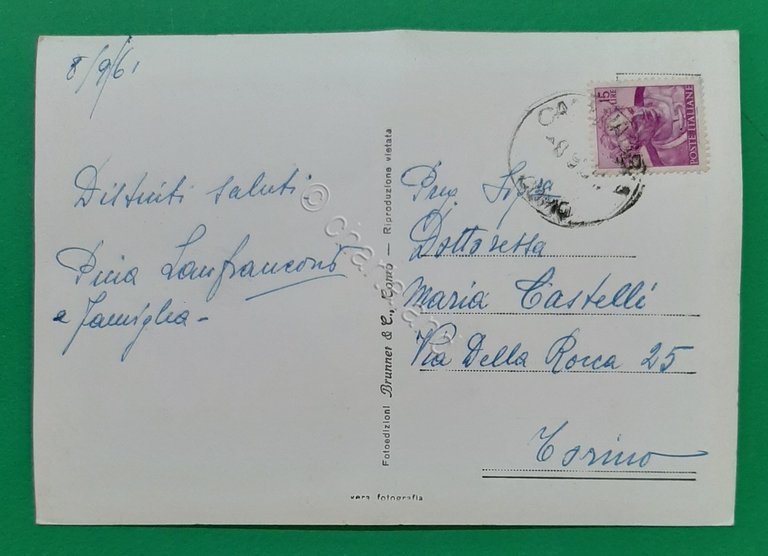 8/9/61
Distinti saluti
Pina Lanfranconi
e famiglia -
Fotoedizioni Brunner & C., Como — Riproduzione vietata
vera fotografia
15
LIRE
POSTE ITALIANE
COMO
Dottoressa
Maria Castelli
Via Della Rocca 25
Torino